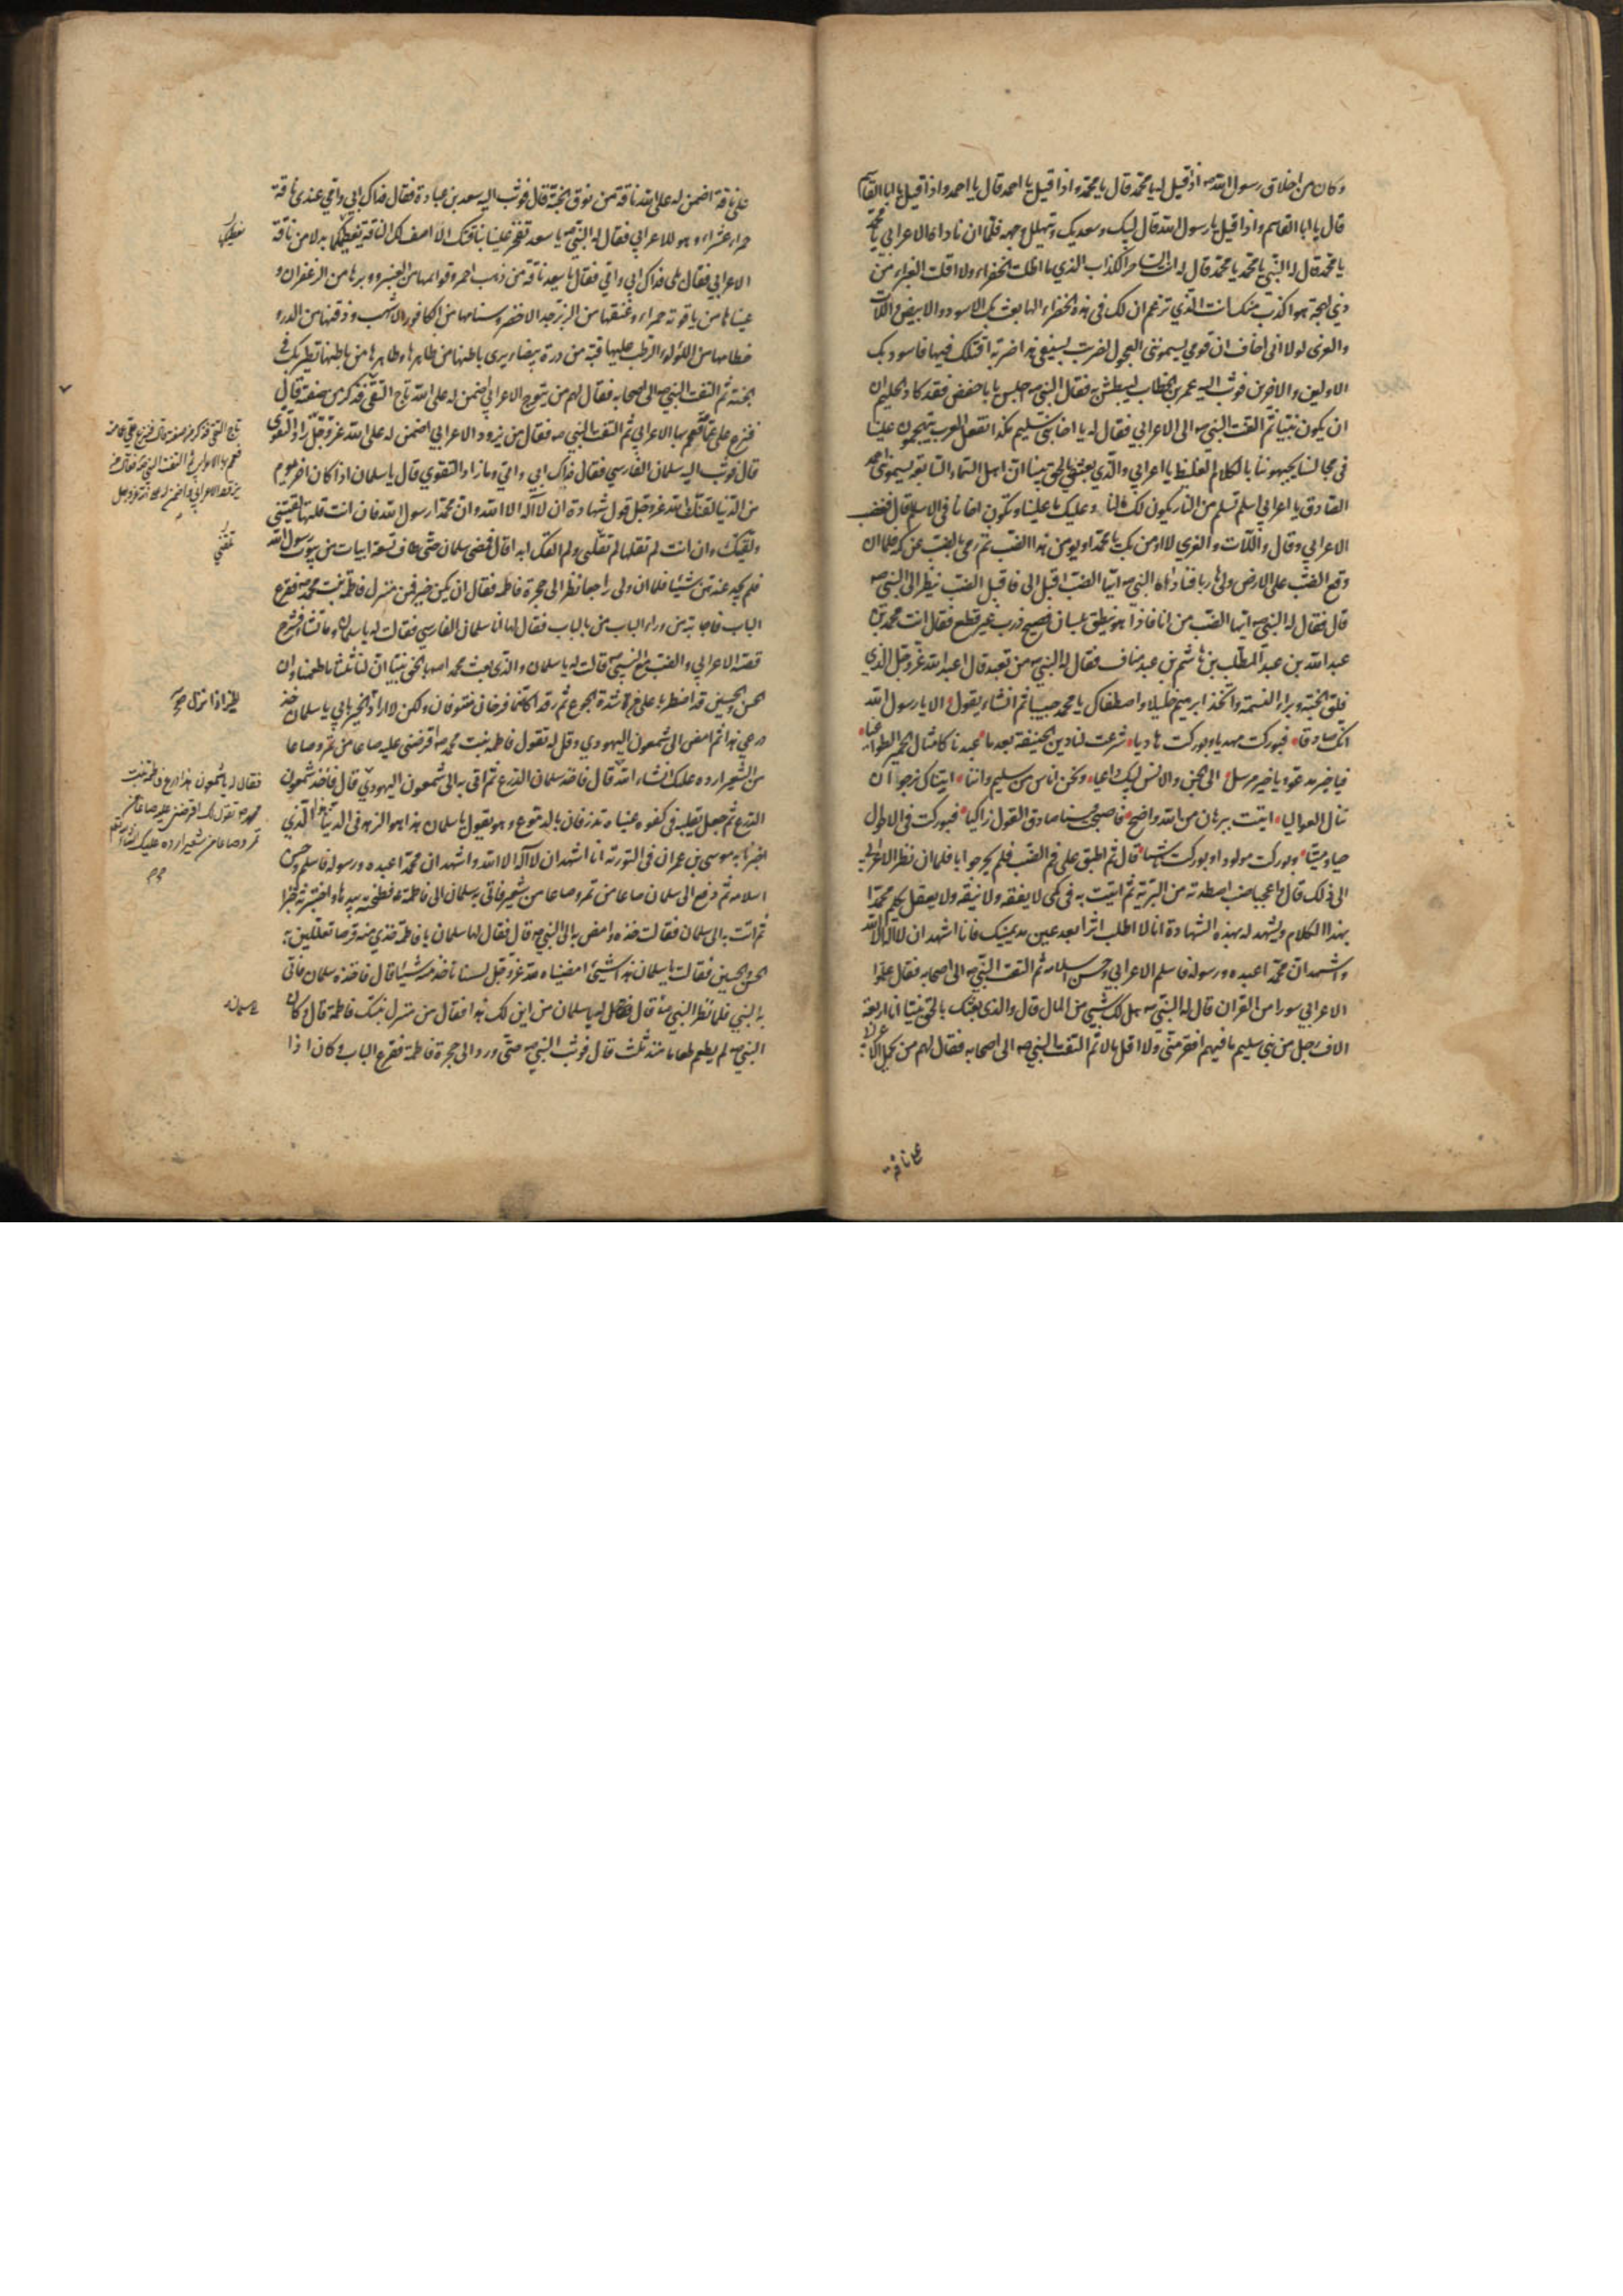 وكان من اخلاق رسول الله ص اذ قيل له يا محمد قال يا محمد واذا قيل يا احمد قال يا احمد واذا قيل يا ابا القاسم
قال يا ابا القاسم واذا قيل يا رسول الله قال لبيك وسعديك وتهلل وجهه فلما ان ناداه الاعرابي يا محمد
يا محمد قال له النبي يا محمد يا محمد قال له انت الساحر الكذاب الذي ما اظلت الخضراء ولا اقلت الغبراء من
ذي لهجة هو اكذب منك انت الذي تزعم ان لك في هذه الخضراء الها بعث بك الى الاسود والابيض واللات
والعزى لولا اني اخاف ان قومي يسمونني العجول لضربتك بسيفي هذا ضربة اقتلك فيها فاسود بك
الاولين والاخرين فوثب اليه عمر بن الخطاب ليبطش به فقال النبي ص اجلس يا با حفص فقد كاد الحليم ان
ان يكون نبيا ثم التفت النبي ص الى الاعرابي فقال له يا اخا بني سليم هكذا تفعل العرب يتهجمون علينا
في مجالسنا يجبهوننا بالكلام الغليظ يا اعرابي والذي بعثني بالحق نبيا ان اهل السماء السابعة ليسموني احمد
الصادق يا اعرابي اسلم تسلم من النار يكون لك ما لنا وعليك ما علينا وتكون اخانا في الاسلام قال فغضب
الاعرابي وقال واللات والعزى لا اومن بك يا محمد او يومن هذا الضب ثم رمى بالضب عن كمه فلما ان
وقع الضب على الارض ولى هاربا فناداه النبي ص ايها الضب اقبل الي فاقبل الضب ينظر الى النبي ص
قال فقال له النبي ص ايها الضب من انا فاذا هو ينطق بلسان فصيح ذرب غير قطع فقال انت محمد بن
عبد الله بن عبد المطلب بن هاشم بن عبد مناف فقال له النبي ص من تعبد قال اعبد الله عز وجل الذي
فلق الحبة وبراء النسمة واتخذ ابرهيم خليلا واصطفاك يا محمد حبيبا ثم انشاء يقول الا يا رسول الله
انك صادقا فبوركت مهديا وبوركت هاديا شرعت لنا دين الحنيفة بعد ما عبدنا كامثال الحمير الطواغيا
فيا خير مدعو ويا خير مرسل الى الجن والانس لبيك داعيا ونحن اناس من سليم واننا اتيناك نرجو ان
ننال العواليا اتيت ببرهان من الله واضح فاصبحت فينا صادق القول زاكيا فبوركت في الاحوال
حيا وميتا وبوركت مولودا وبوركت ناشيا قال ثم اطبق على فم الضب فلم يحر جوابا فلما ان نظر الاعرابي
الى ذلك قال واعجبا ضب اصطدته من البرية ثم اتيت به في كمي لا يفقه ولا ينقه ولا يعقل يكلم محمدا
بهذا الكلام ويشهد له بهذه الشهادة انا لا اطلب اثرا بعد عين مد يمينك فانا اشهد ان لا اله الا الله
واشهد ان محمدا عبده ورسوله فاسلم الاعرابي وحسن اسلامه ثم التفت النبي ص الى اصحابه فقال علموا
الاعرابي سورا من القران قال له النبي ص هل لك شيئ من المال قال والذي بعثك بالحق نبيا انا اربعة
الاف رجل من بني سليم ما فيهم افقر مني ولا اقل مالا ثم التفت النبي ص الى اصحابه فقال لهم من يحمل الاعرابي
على ناقة
على ناقة اضمن له على الله ناقة من نوق الجنة قال فوثب اليه سعد بن عبادة فقال فداك ابي وامي عندي ناقة
حمراء عشراء وهو للاعرابي فقال له النبي ص يا سعد تفخر علينا بناقتك الا اصف لك الناقة نعطيكها بدلا من ناقة
الاعرابي فقال بلى فداك ابي وامي فقال يا سعد ناقة من ذهب احمر وقوائمها من العنبر ووبرها من الزعفران و
عيناها من ياقوتة حمراء وعنقها من الزبرجد الاخضر وسنامها من الكافور الاشهب وذقنها من الدر و
خطامها من اللؤلؤ الرطب عليها قبة من درة بيضاء يرى باطنها من ظاهرها وظاهرها من باطنها تطير بك في
الجنة ثم التفت النبي ص الى اصحابه فقال لهم من يتوج الاعرابي اضمن له على الله تاج التقى فذكر من صفته فقال
فنزع علي عمامته فعمم بها الاعرابي ثم التفت النبي ص فقال من يزود الاعرابي اضمن له على الله عز وجل زاد التقوى
قال فوثب اليه سلمان الفارسي فقال فداك ابي وامي وما زاد التقوى قال يا سلمان اذا كان اخر يوم
من الدنيا لقنك الله عز وجل قول شهادة ان لا اله الا الله وان محمدا رسول الله فان انت قلتها لقيتني
ولقيتك وان انت لم تقلها لم تلقني ولم القك ابدا قال فمضى سلمان حتى طاف تسعة ابيات من بيوت رسول الله
فلم يجد عندهن شيئا فلما ان ولى راجعا نظر الى حجرة فاطمة فقال ان يكن خير فمن منزل فاطمة بنت محمد ص فقرع
الباب فاجابته من وراء الباب من بالباب فقال لها انا سلمان الفارسي فقالت له يا سلمان وما تشاء فشرح
قصة الاعرابي والضب مع النبي ص قالت له يا سلمان والذي بعث محمدا ص بالحق نبيا ان لنا ثلثا ما طعمنا وان
الحسن والحسين قد اضطربا علي من شدة الجوع ثم رقدا كانهما فرخان منتوفان ولكن لا ارد الخير يا سلمان خذ
درعي هذا ثم امض الى شمعون اليهودي وقل له تقول فاطمة بنت محمد ص اقرضني عليه صاعا من تمر وصاعا
من الشعير ارده عليك انشاء الله قال فاخذ سلمان الدرع ثم اتى به الى شمعون اليهودي قال فاخذ شمعون
الدرع ثم جعل يقلبه في كفه وعيناه تذرفان بالدموع وهو يقول يا سلمان هذا هو الزهد في الدنيا هذا الذي
اخبرنا به موسى بن عمران في التورية انا اشهد ان لا اله الا الله واشهد ان محمدا عبده ورسوله فاسلم وحسن
اسلامه ثم دفع الى سلمان صاعا من تمر وصاعا من شعير فاتى به سلمان الى فاطمة فطحنته بيدها واختبزته خبزا
ثم اتت به الى سلمان فقالت خذه وامض به الى النبي ص قال فقال لها سلمان يا فاطمة خذي منه قرصا تعللين به
الحسن والحسين فقالت يا سلمان هذا شيئ امضيناه لله عز وجل لسنا ناخذ منه شيئا قال فاخذه سلمان فاتى
به النبي فلما نظر النبي ص قال له يا سلمان من اين لك هذا فقال من منزل بنتك فاطمة قال وكان
النبي ص لم يطعم طعاما منذ ثلث قال فوثب النبي ص حتى ورد الى حجرة فاطمة فقرع الباب وكان اذا
فقال له يا شمعون هذا درع فاطمة بنت
محمد ص تقول لك اقرضني عليه صاعا من
تمر وصاعا من شعير ارده عليك انشاء الله